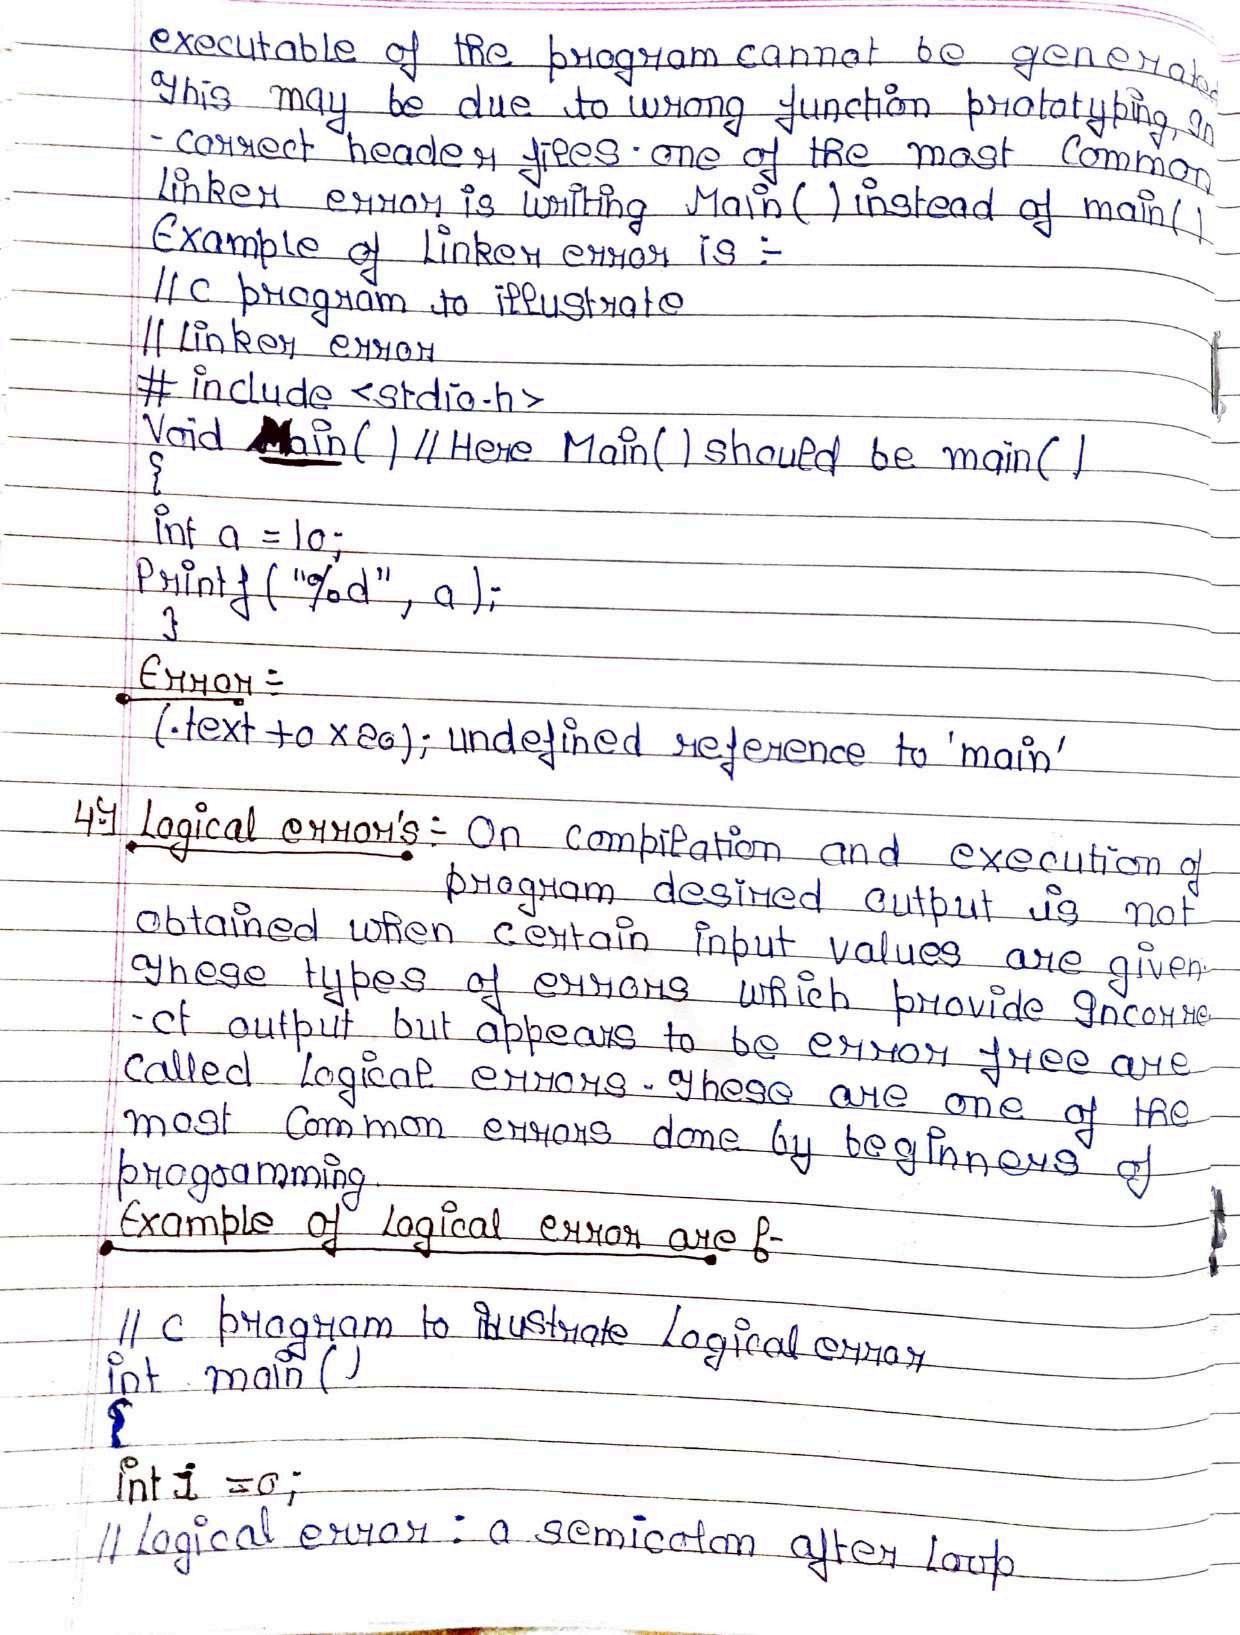 executable of the program cannot be generated
This may be due to wrong function prototyping, In
-correct header files. one of the most Common
Linker error is writing Main( ) instead of main( )
Example of Linker error is :-
// C program to illustrate
// Linker error
# include <stdio.h>
Void Main( ) // Here Main( ) should be main( )
{
int a = 10;
Printf ("%d", a);
}
Error :-
(.text + 0 x 20); undefined reference to 'main'
4) Logical error's :- On compilation and execution of
program desired output is not
obtained when certain input values are given.
These types of errors which provide Incorre
-ct output but appears to be error free are
called Logical errors. These are one of the
most Common errors done by beginners of
programming.
Example of Logical error are :-
// C program to illustrate Logical error
int main ( )
{
int i = 0;
// Logical error : a semicolon after loop